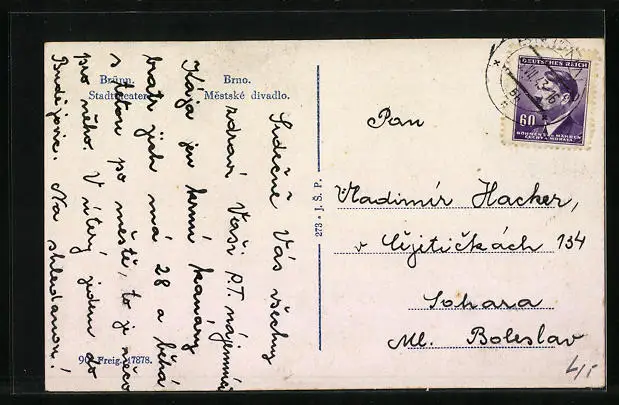 Brünn.
Stadttheater.
Brno.
Městské divadlo.
Srdečně Vás všechny
zdraví Vaši P.T. nájemníci
Kája je krmí kanáry
bratr jich má 28 a běhá
s tetou po městě, to je něco
pro něho. V úterý jedem do
Budějovic. Na shledanou!
90 Freig. 17878.
273 - J. Š. P.
DEUTSCHES REICH
60
BÖHMEN UND MÄHREN
ČECHY A MORAVA
Pan
Vladimír Hacker,
v Čejtičkách 134
Sahara
Ml. Boleslav